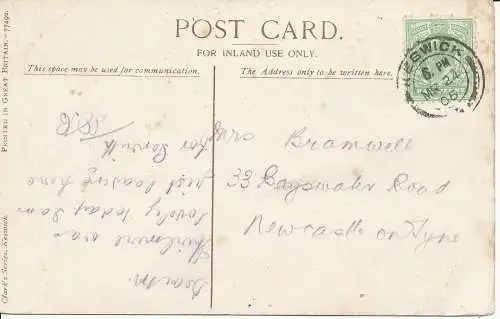 POST CARD.
FOR INLAND USE ONLY.
This space may be used for communication.
The Address only to be written here.
KESWICK
6. PM
08
Mrs Bramwell
33 Bayswater Road
Newcastle on Tyne
Dear M.
Thirlmere was
lovely today I am
just leaving here
for Penrith
PRINTED IN GREAT BRITAIN.—77490.
Clark's Series, Keswick.